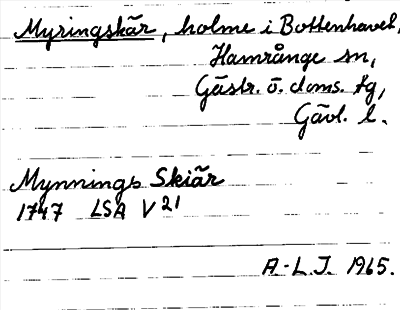 Myringskär, holme i Bottenhavet,
Hamrånge sn,
Gästr. ö. doms. tg,
Gävl. l.
Mynnings Skiär
1747 LSA V 21
A-L.J. 1965.